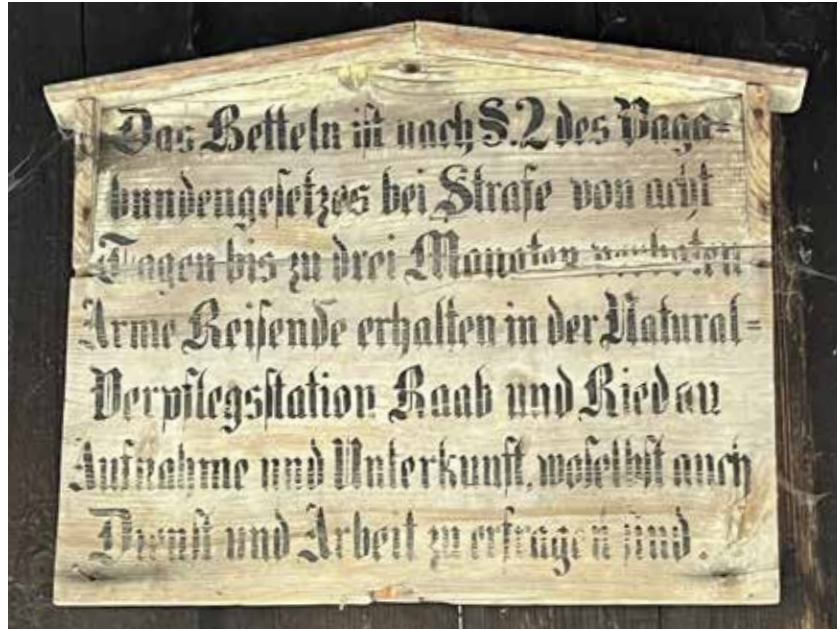 Das Betteln ist nach §.2 des Vaga=
bundengesetzes bei Strafe von acht
Tagen bis zu drei Monaten verboten
Arme Reisende erhalten in der Natural=
Verpflegsstation Raab und Riedau
Aufnahme und Unterkunft, woselbst auch
Dienst und Arbeit zu erfragen sind.